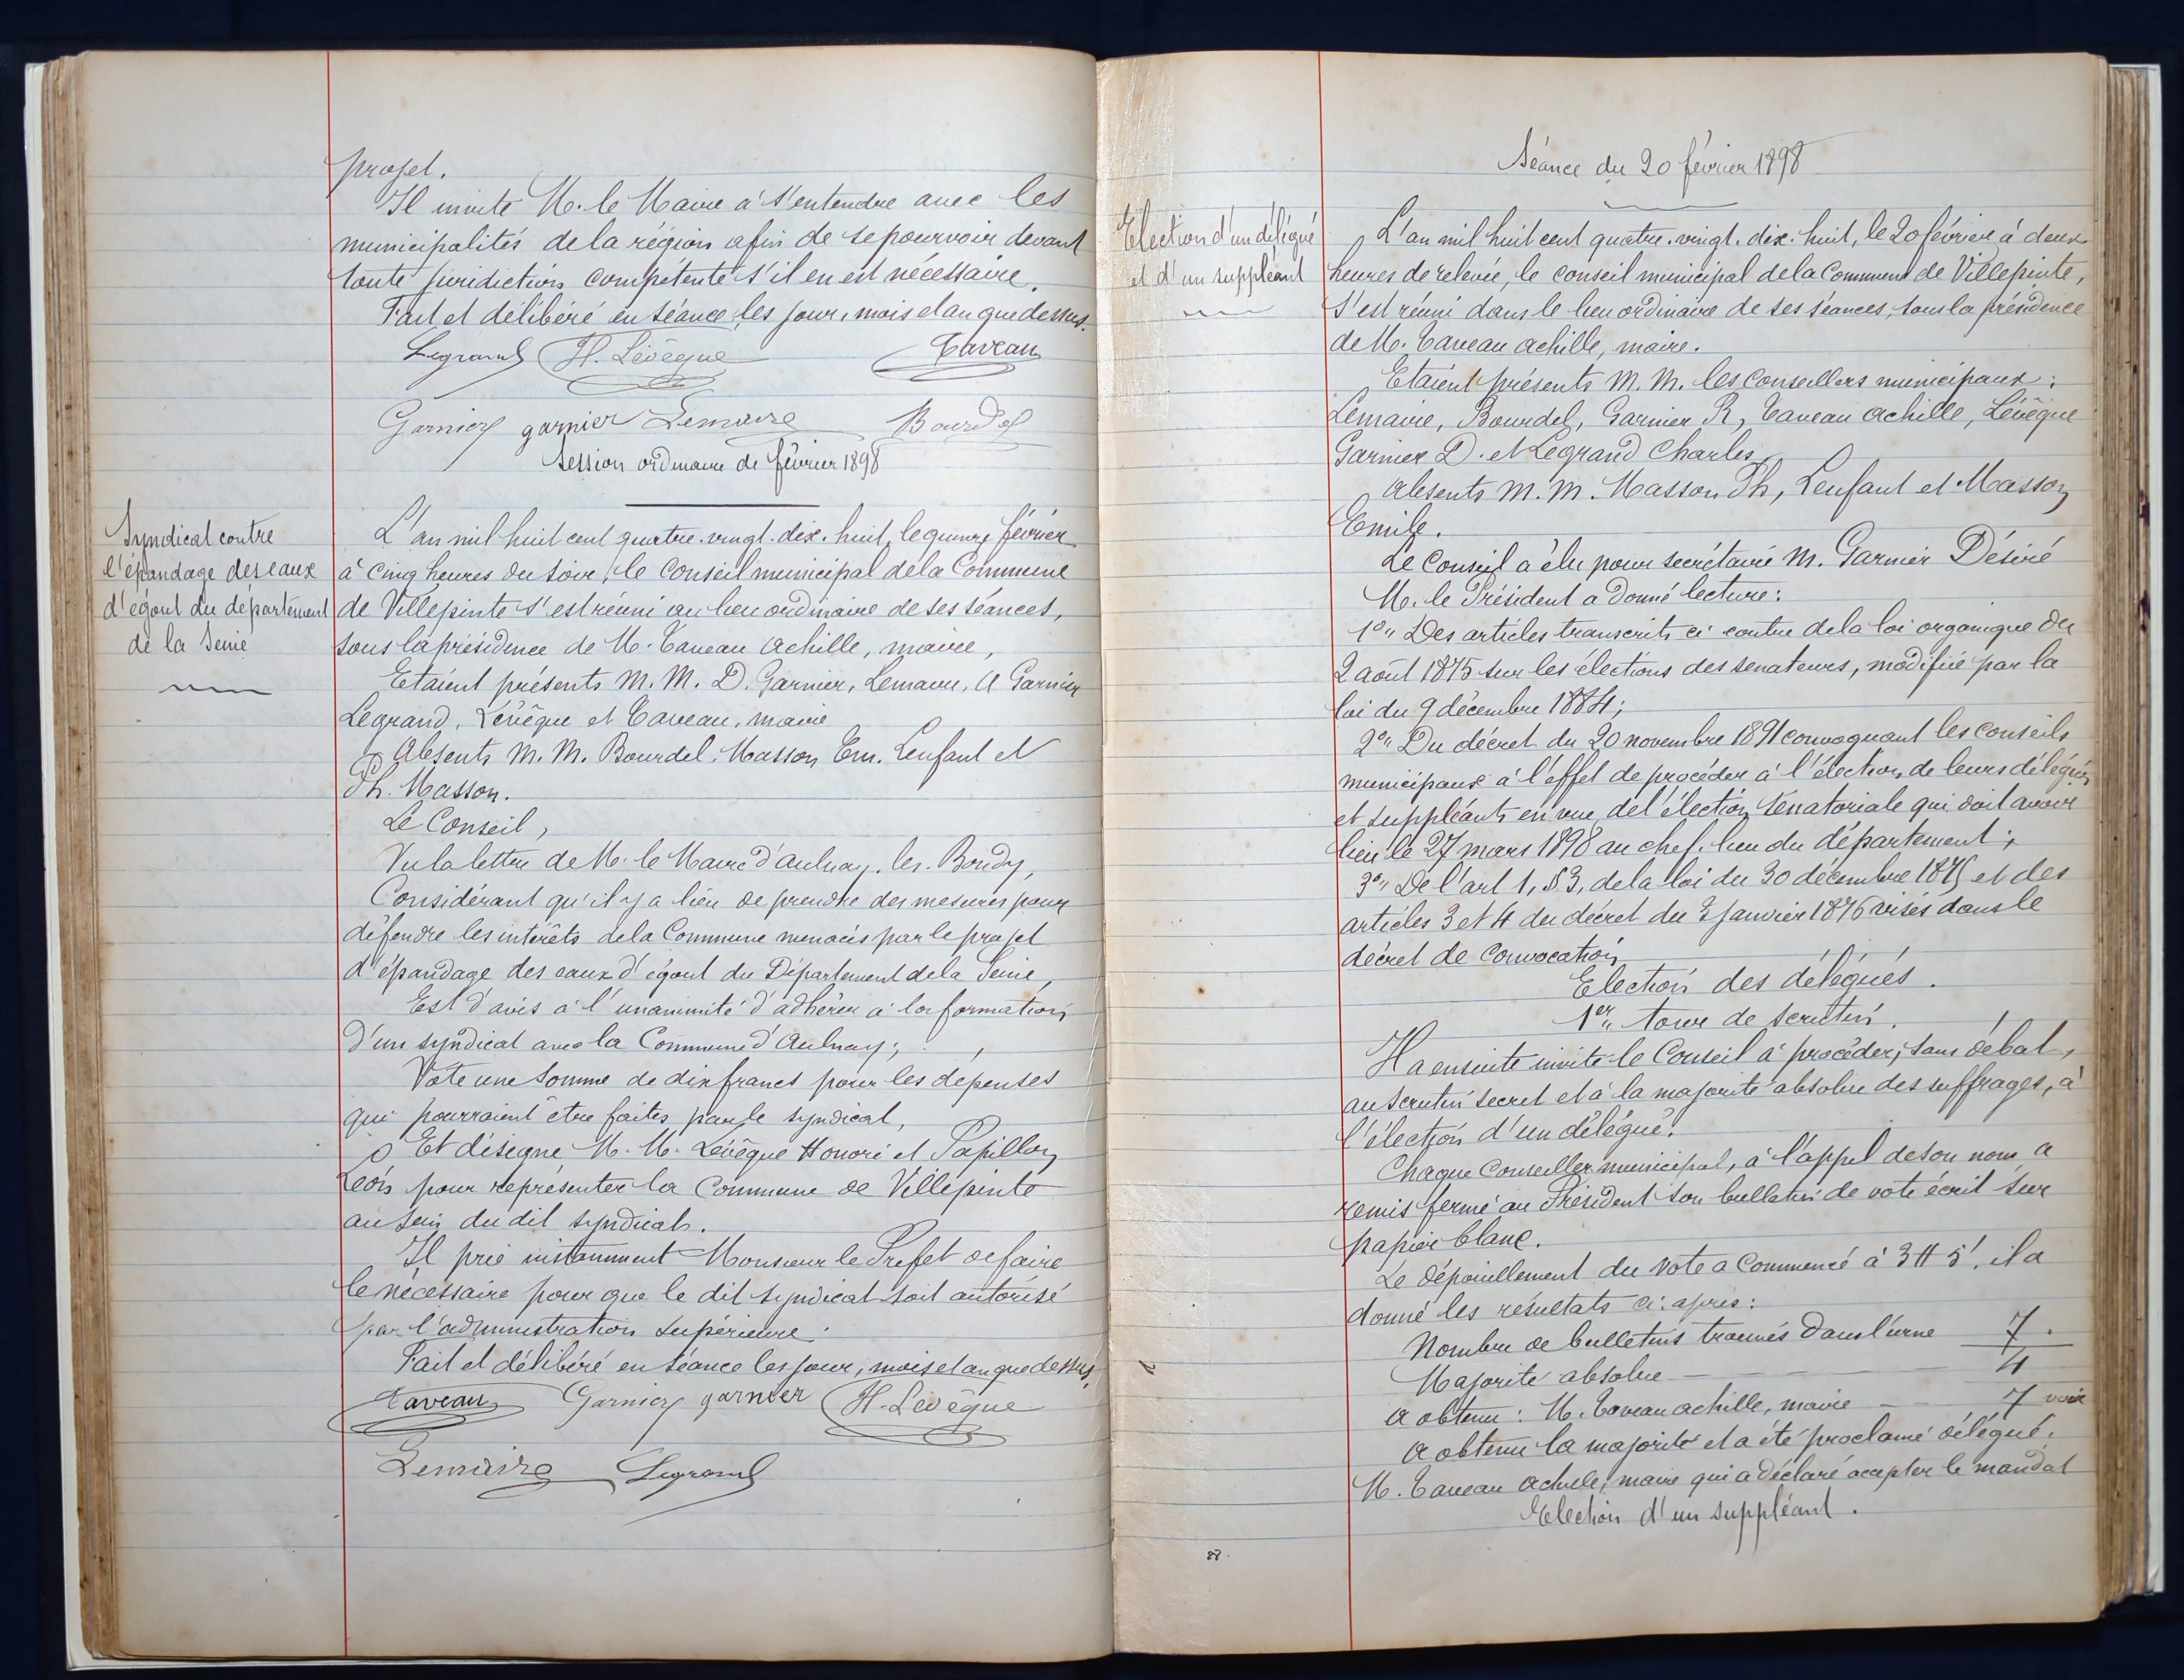 projet.
Il invite M. le Maire à s'entendre avec les
municipalités de la région afin de se pourvoir devant
toute juridiction compétente s'il en est nécessaire.
Fait et délibéré en séance, les jour, mois et an que dessus.
Legrand H. Lévêque Taveau
Garnier garnier Lemaire Bourdel
Session ordinaire de février 1898
Syndicat contre
l'épandage des eaux
d'égout du département
de la Seine
L'an mil huit cent quatre-vingt-dix-huit, le quinze février
à cinq heures du soir, le Conseil municipal de la Commune
de Villepinte s'est réuni au lieu ordinaire de ses séances,
sous la présidence de M. Taveau Achille, maire,
Etaient présents M. M. D. Garnier, Lemaire, A Garnier
Legrand, Lévêque et Taveau, maire
Absents M. M. Bourdel, Masson Em. Lenfant et
Ph. Masson.
Le Conseil,
Vu la lettre de M. le Maire d'Aulnay-les-Bondy,
Considérant qu'il y a lieu de prendre des mesures pour
défendre les intérêts de la Commune menacés par le projet
d'épandage des eaux d'égout du Département de la Seine,
Est d'avis à l'unanimité d'adhérer à la formation
d'un syndicat avec la Commune d'Aulnay;
Vote une somme de dix francs pour les dépenses
qui pourraient être faites par le syndicat,
Et désigne M. M. Lévêque Honoré et Papillon
Léon pour représenter la Commune de Villepinte
au sein du dit syndicat.
Il prie instamment Monsieur le Préfet de faire
le nécessaire pour que le dit syndicat soit autorisé
par l'administration supérieure.
Fait et délibéré en séance les jour, mois et an que dessus.
Taveau Garnier garnier H. Lévêque
Lemaire Legrand
Séance du 20 février 1898
Election d'un délégué
et d'un suppléant
L'an mil huit cent quatre-vingt-dix-huit, le 20 février à deux
heures de relevée, le conseil municipal de la Commune de Villepinte,
s'est réuni dans le lieu ordinaire de ses séances, sous la présidence
de M. Taveau Achille, maire.
Etaient présents M. M. les Conseillers municipaux:
Lemaire, Bourdel, Garnier R, Taveau Achille, Lévêque
Garnier D. et Legrand Charles.
Absents M. M. Masson Ph, Lenfant et Masson
Emile.
Le Conseil a élu pour secrétaire M. Garnier Désiré
M. le Président a donné lecture:
1° Des articles transcrits ci-contre de la loi organique du
2 août 1875 sur les élections des senateurs, modifiée par la
loi du 9 décembre 1884;
2° Du décret du 20 novembre 1891 convoquant les conseils
municipaux à l'effet de procéder à l'élection de leurs délégués
et suppléants en vue de l'élection sénatoriale qui doit avoir
lieu le 27 mars 1898 au chef-lieu du département;
3° De l'art 1, § 3, de la loi du 30 décembre 1875 et des
articles 3 et 4 du décret du 3 janvier 1876 visés dans le
décret de convocation
Election des délégués.
1er tour de scrutin.
Il a ensuite invité le Conseil à procéder, sans débat,
au scrutin secret et à la majorité absolue des suffrages, à
l'élection d'un délégué.
Chaque Conseiller municipal, à l'appel de son nom a
remis fermé au Président son bulletin de vote écrit sur
papier blanc.
Le dépouillement du vote a commencé à 3 H 5', il a
donné les résultats ci-après:
Nombre de bulletins trouvés dans l'urne 7.
Majorité absolue 4
A obtenu: M. Taveau Achille, maire 7 voix
A obtenu la majorité et a été proclamé délégué.
M. Taveau Achille, maire qui a déclaré accepter le mandat
Election d'un suppléant.